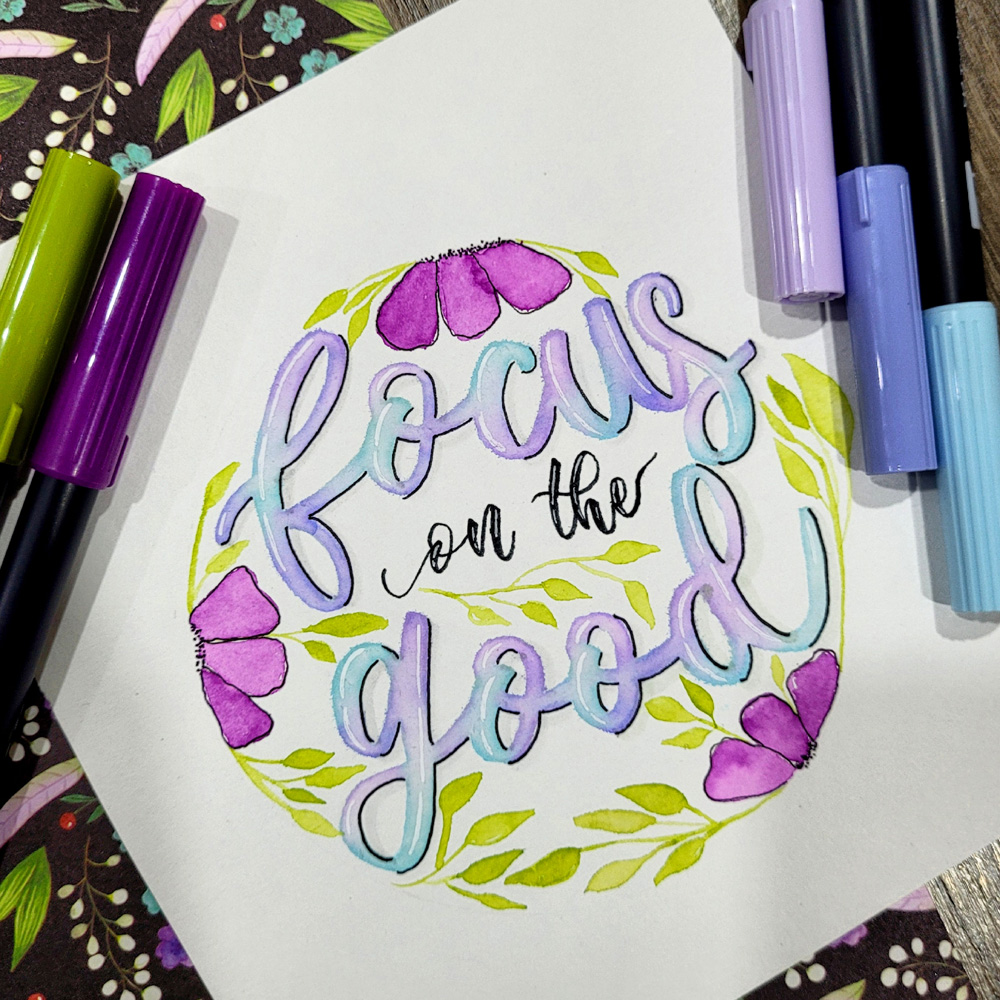 focus
on the
good